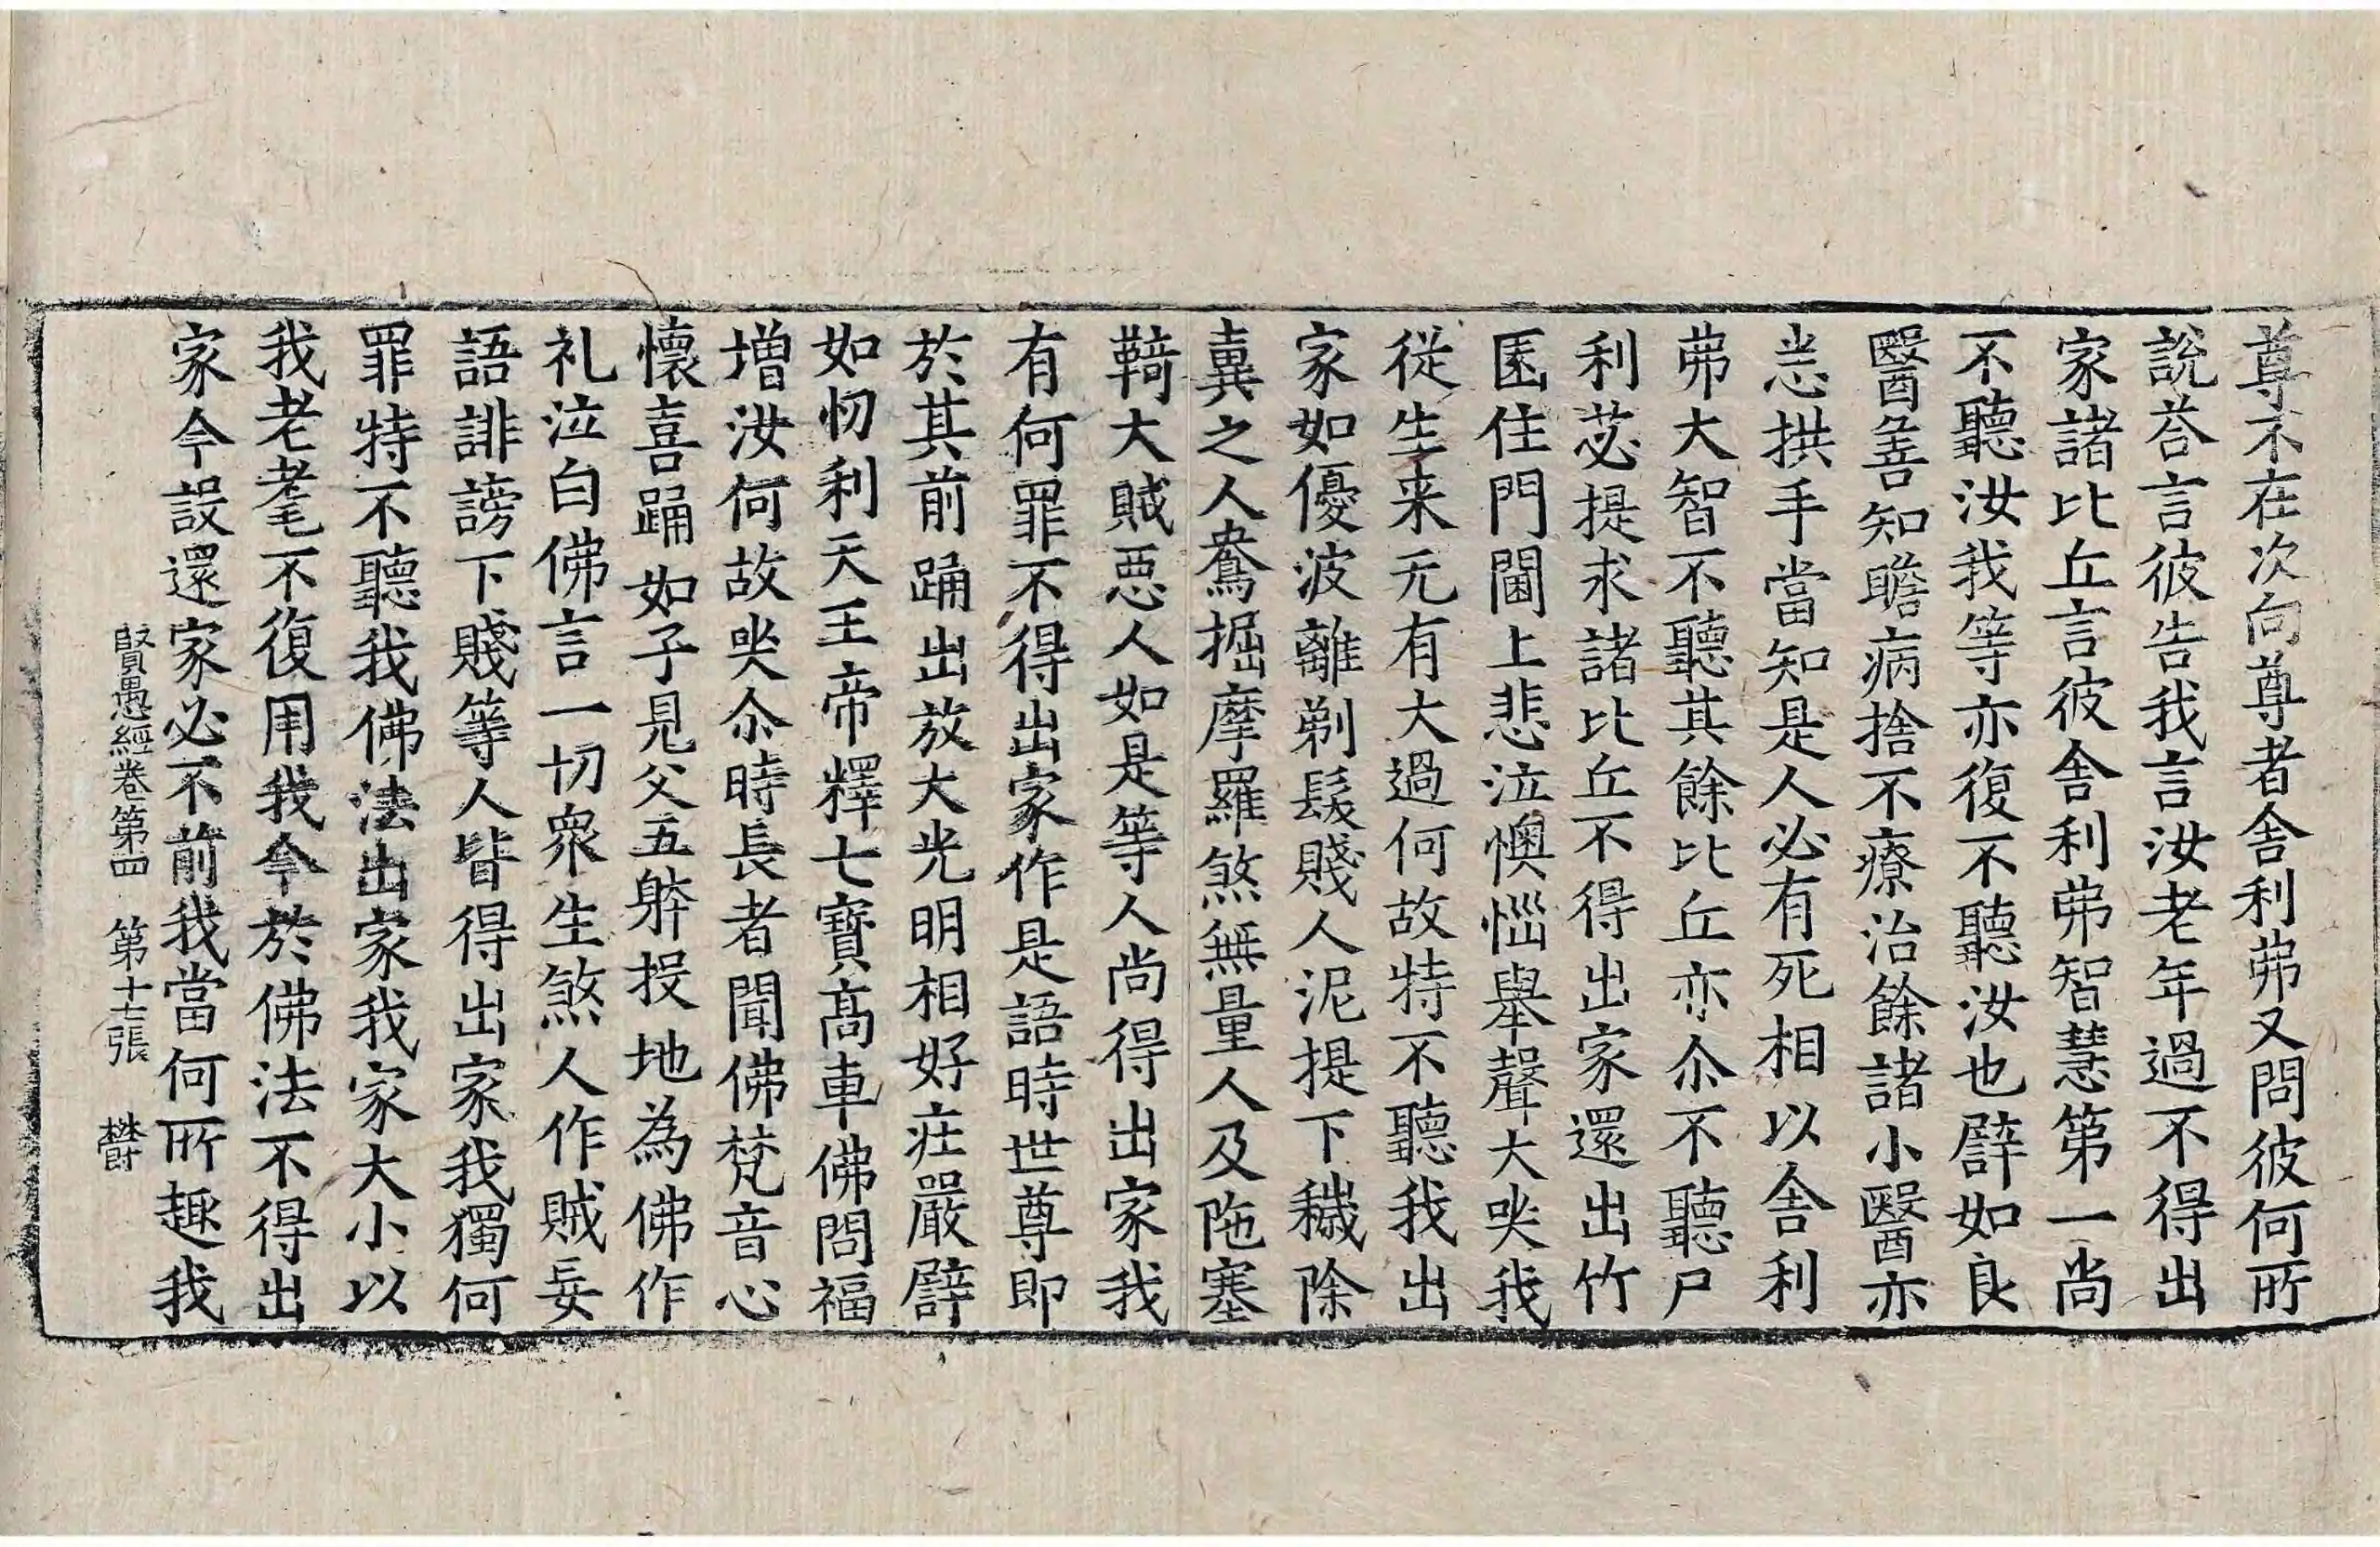 尊不在次向尊者舍利弗又問彼何所
說荅言彼告我言汝老年過不得出
家諸比丘言彼舍利弗智慧第一尚
不聽汝我等亦復不聽汝也譬如良
醫善知瞻病捨不療治餘諸小醫亦
悉拱手當知是人必有死相以舍利
弗大智不聽其餘比丘亦尒不聽尸
利苾提求諸比丘不得出家還出竹
園住門閫上悲泣懊惱舉聲大哭我
従生来无有大過何故特不聽我出
家如優波離剃髮賤人泥提下穢除
糞之人鴦掘摩羅煞無量人及陁塞
鞊大賊惡人如是等人尚得出家我
有何罪不得出家作是語時世尊即
於其前踊出放大光明相好莊嚴譬
如忉利天王帝釋七寶高車佛問福
増汝何故哭尒時長者聞佛梵音心
懷喜踊如子見父五躰投地為佛作
礼泣白佛言一切衆生煞人作賊妄
語誹謗下賤等人皆得出家我獨何
罪特不聽我佛法出家我家大小以
我老耄不復用我今於佛法不得出
家今設還家必不前我當何所趣我
賢愚經卷第四 第十七張 欎